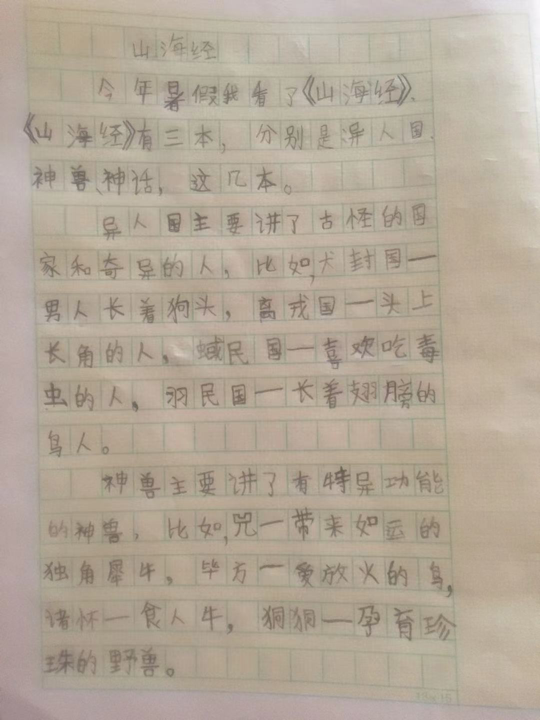 山海经
今年暑假我看了《山海经》、
《山海经》有三本，分别是异人国、
神兽、神话，这几本。
异人国主要讲了古怪的国
家和奇异的人，比如，犬封国一
男人长着狗头，离戎国一头上
长角的人，蜮民国一喜欢吃毒
虫的人，羽民国一长着翅膀的
鸟人。
神兽主要讲了有特异功能
的神兽，比如，兕一带来如运的
独角犀牛，毕方一爱放火的鸟，
诸怀一食人牛，狪狪一孕育珍
珠的野兽。